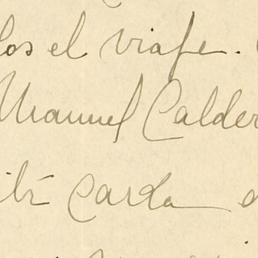 los el viaje.
Manuel Calder
ibí carta